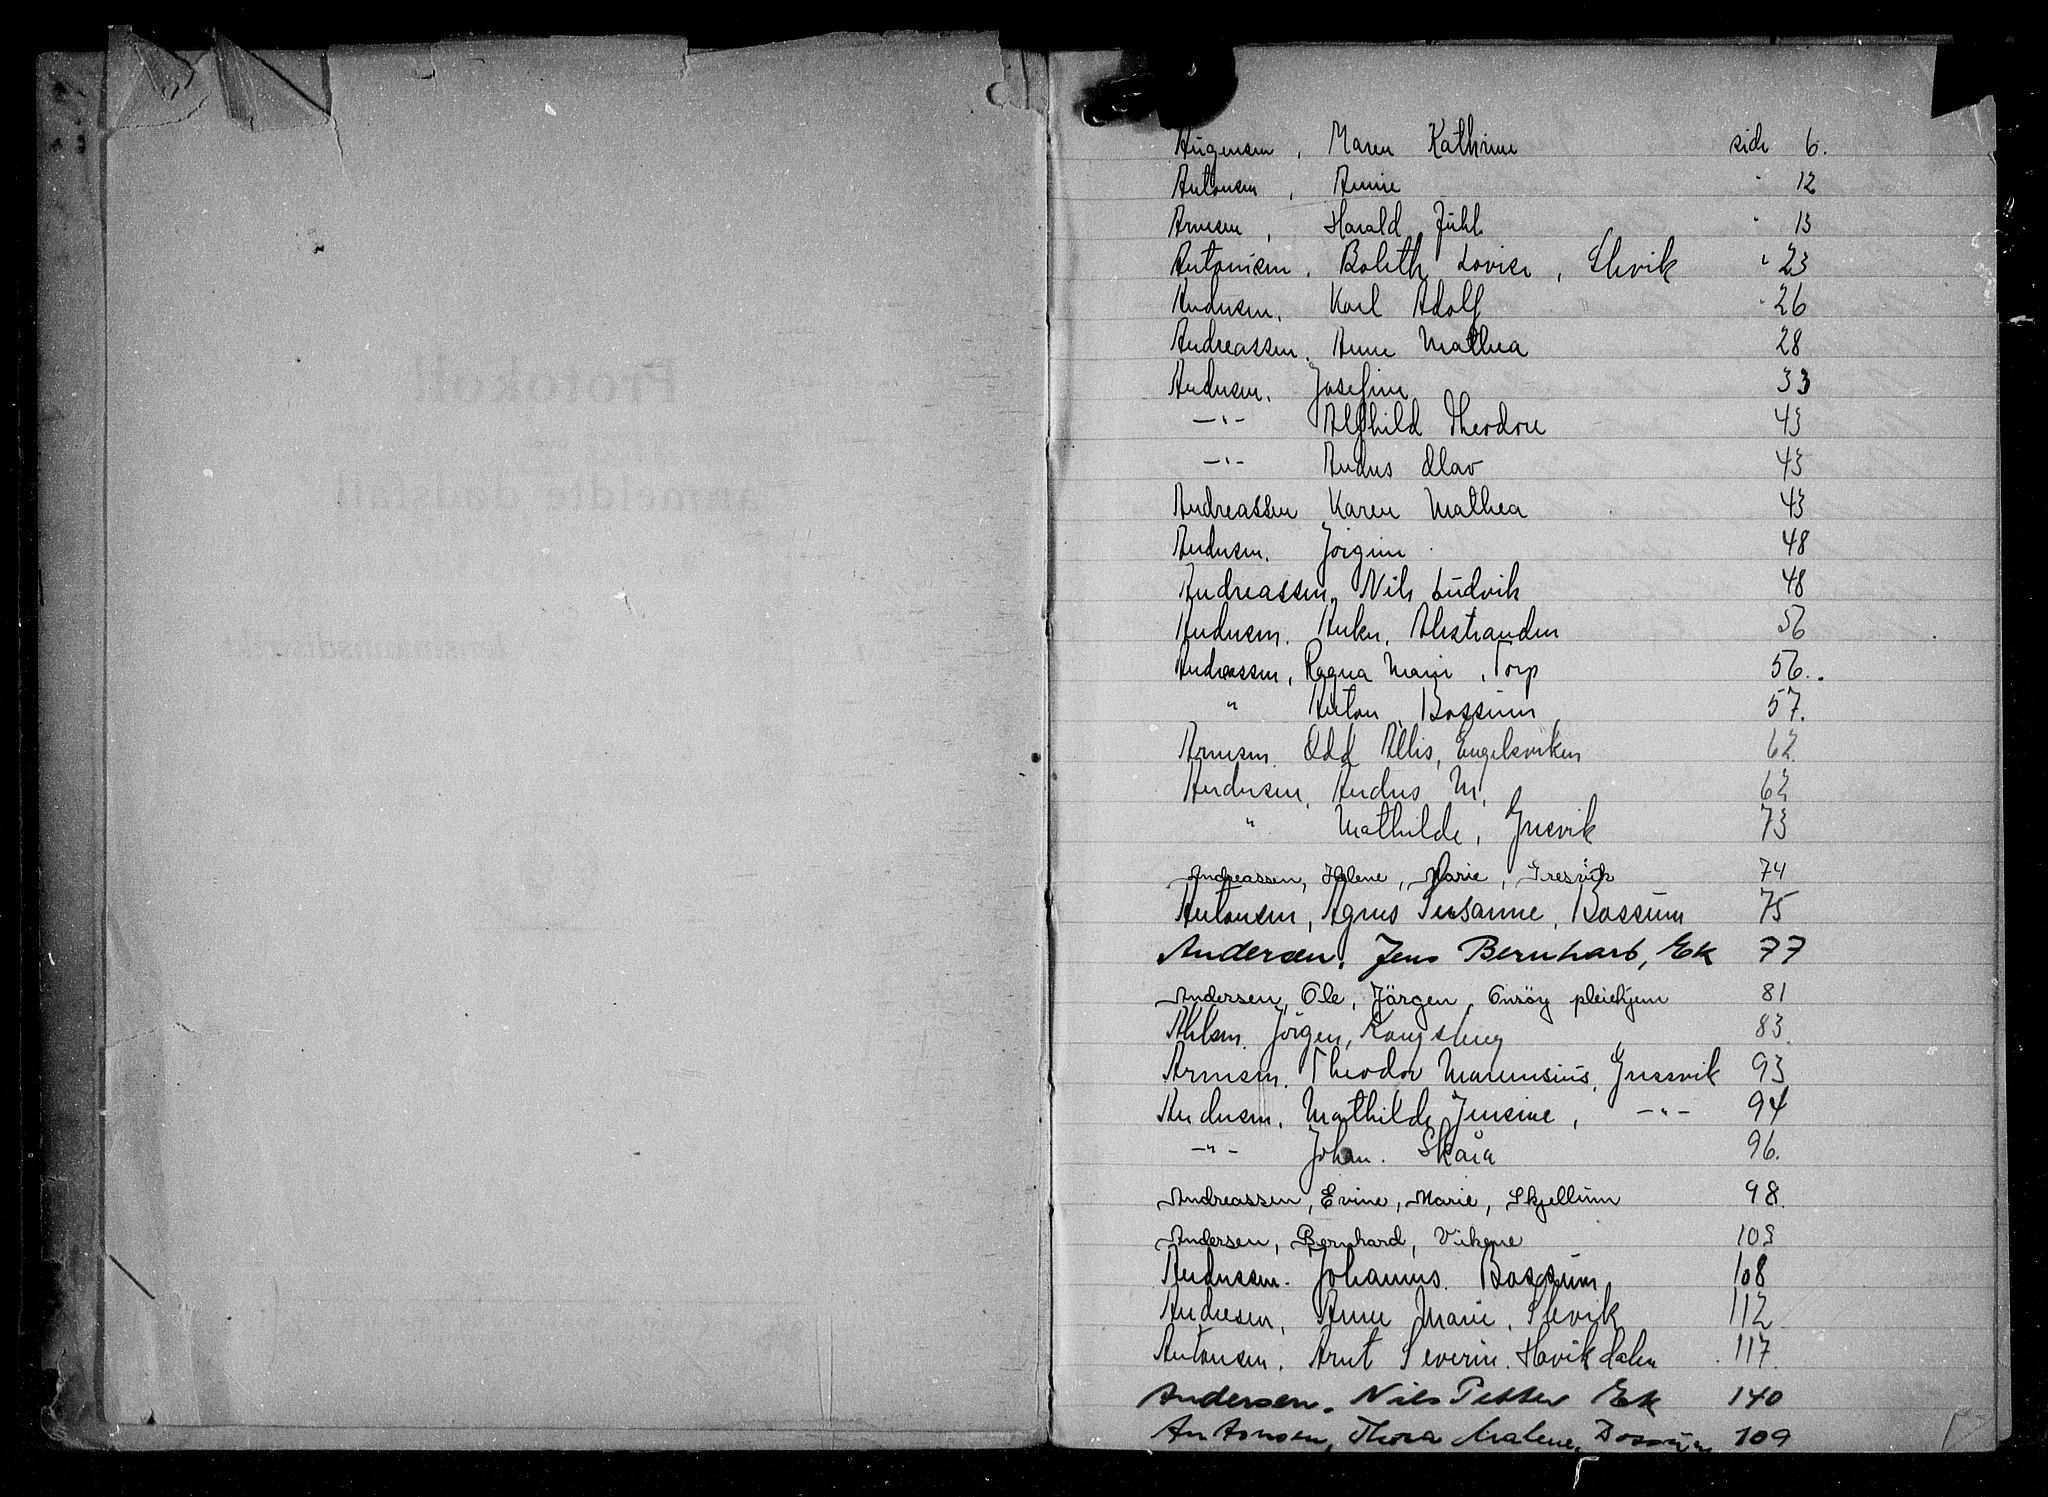 Protokoll
anmeldte dødsfall
lensmannsdistrikt
Augensen, Maren Kathrine side 6.
Antonsen, Annie " 12
Arnesen, Harald Juhl " 13
Antonisen, Boleth Lovise, Slevik " 23
Andersen, Karl Adolf " 26
Andreassen, Anne Mathea 28
Andersen, Josefine 33
—"— Alfhild Theodore 43
—"— Anders Olav 43
Andreassen Karen Mathea 43
Andersen, Jørgine 48
Andreassen, Nils Ludvik 48
Andersen, Anker, Ålestranden 56
Andreassen, Ragna Marie, Torp 56.
" Anton Bossum 57.
Arnesen, Odd Allis, Engelsviken 62
Andersen, Anders M. 62
" Mathilde, Gresvik 73
Andreassen, Helene, Marie, Gresvik 74
Antonsen, Agnes Susanne, Bossum 75
Andersen, Jens Bernhard, Ek 77
Andersen, Ole, Jörgen Onsøy pleiehjem 81
Ahlsen, Jörgen, Kongsberg 83.
Arnesen, Theodor Marensius, Gressvik 93
Andersen, Mathilde Jensine, —"— 94
—"— Johan. Skåra 96.
Andreassen, Evine, Marie, Skjellum 98.
Andersen, Bernhard, Vikene 103
Anderssen. Johannes. Bossum 108
Andresen, Anne Marie, Slevik 112
Antonsen, Arnt Severin. Høvikdalen 117.
Andersen, Nils Petter Ek 140
Antonsen, Thora Malene, Bossum 109